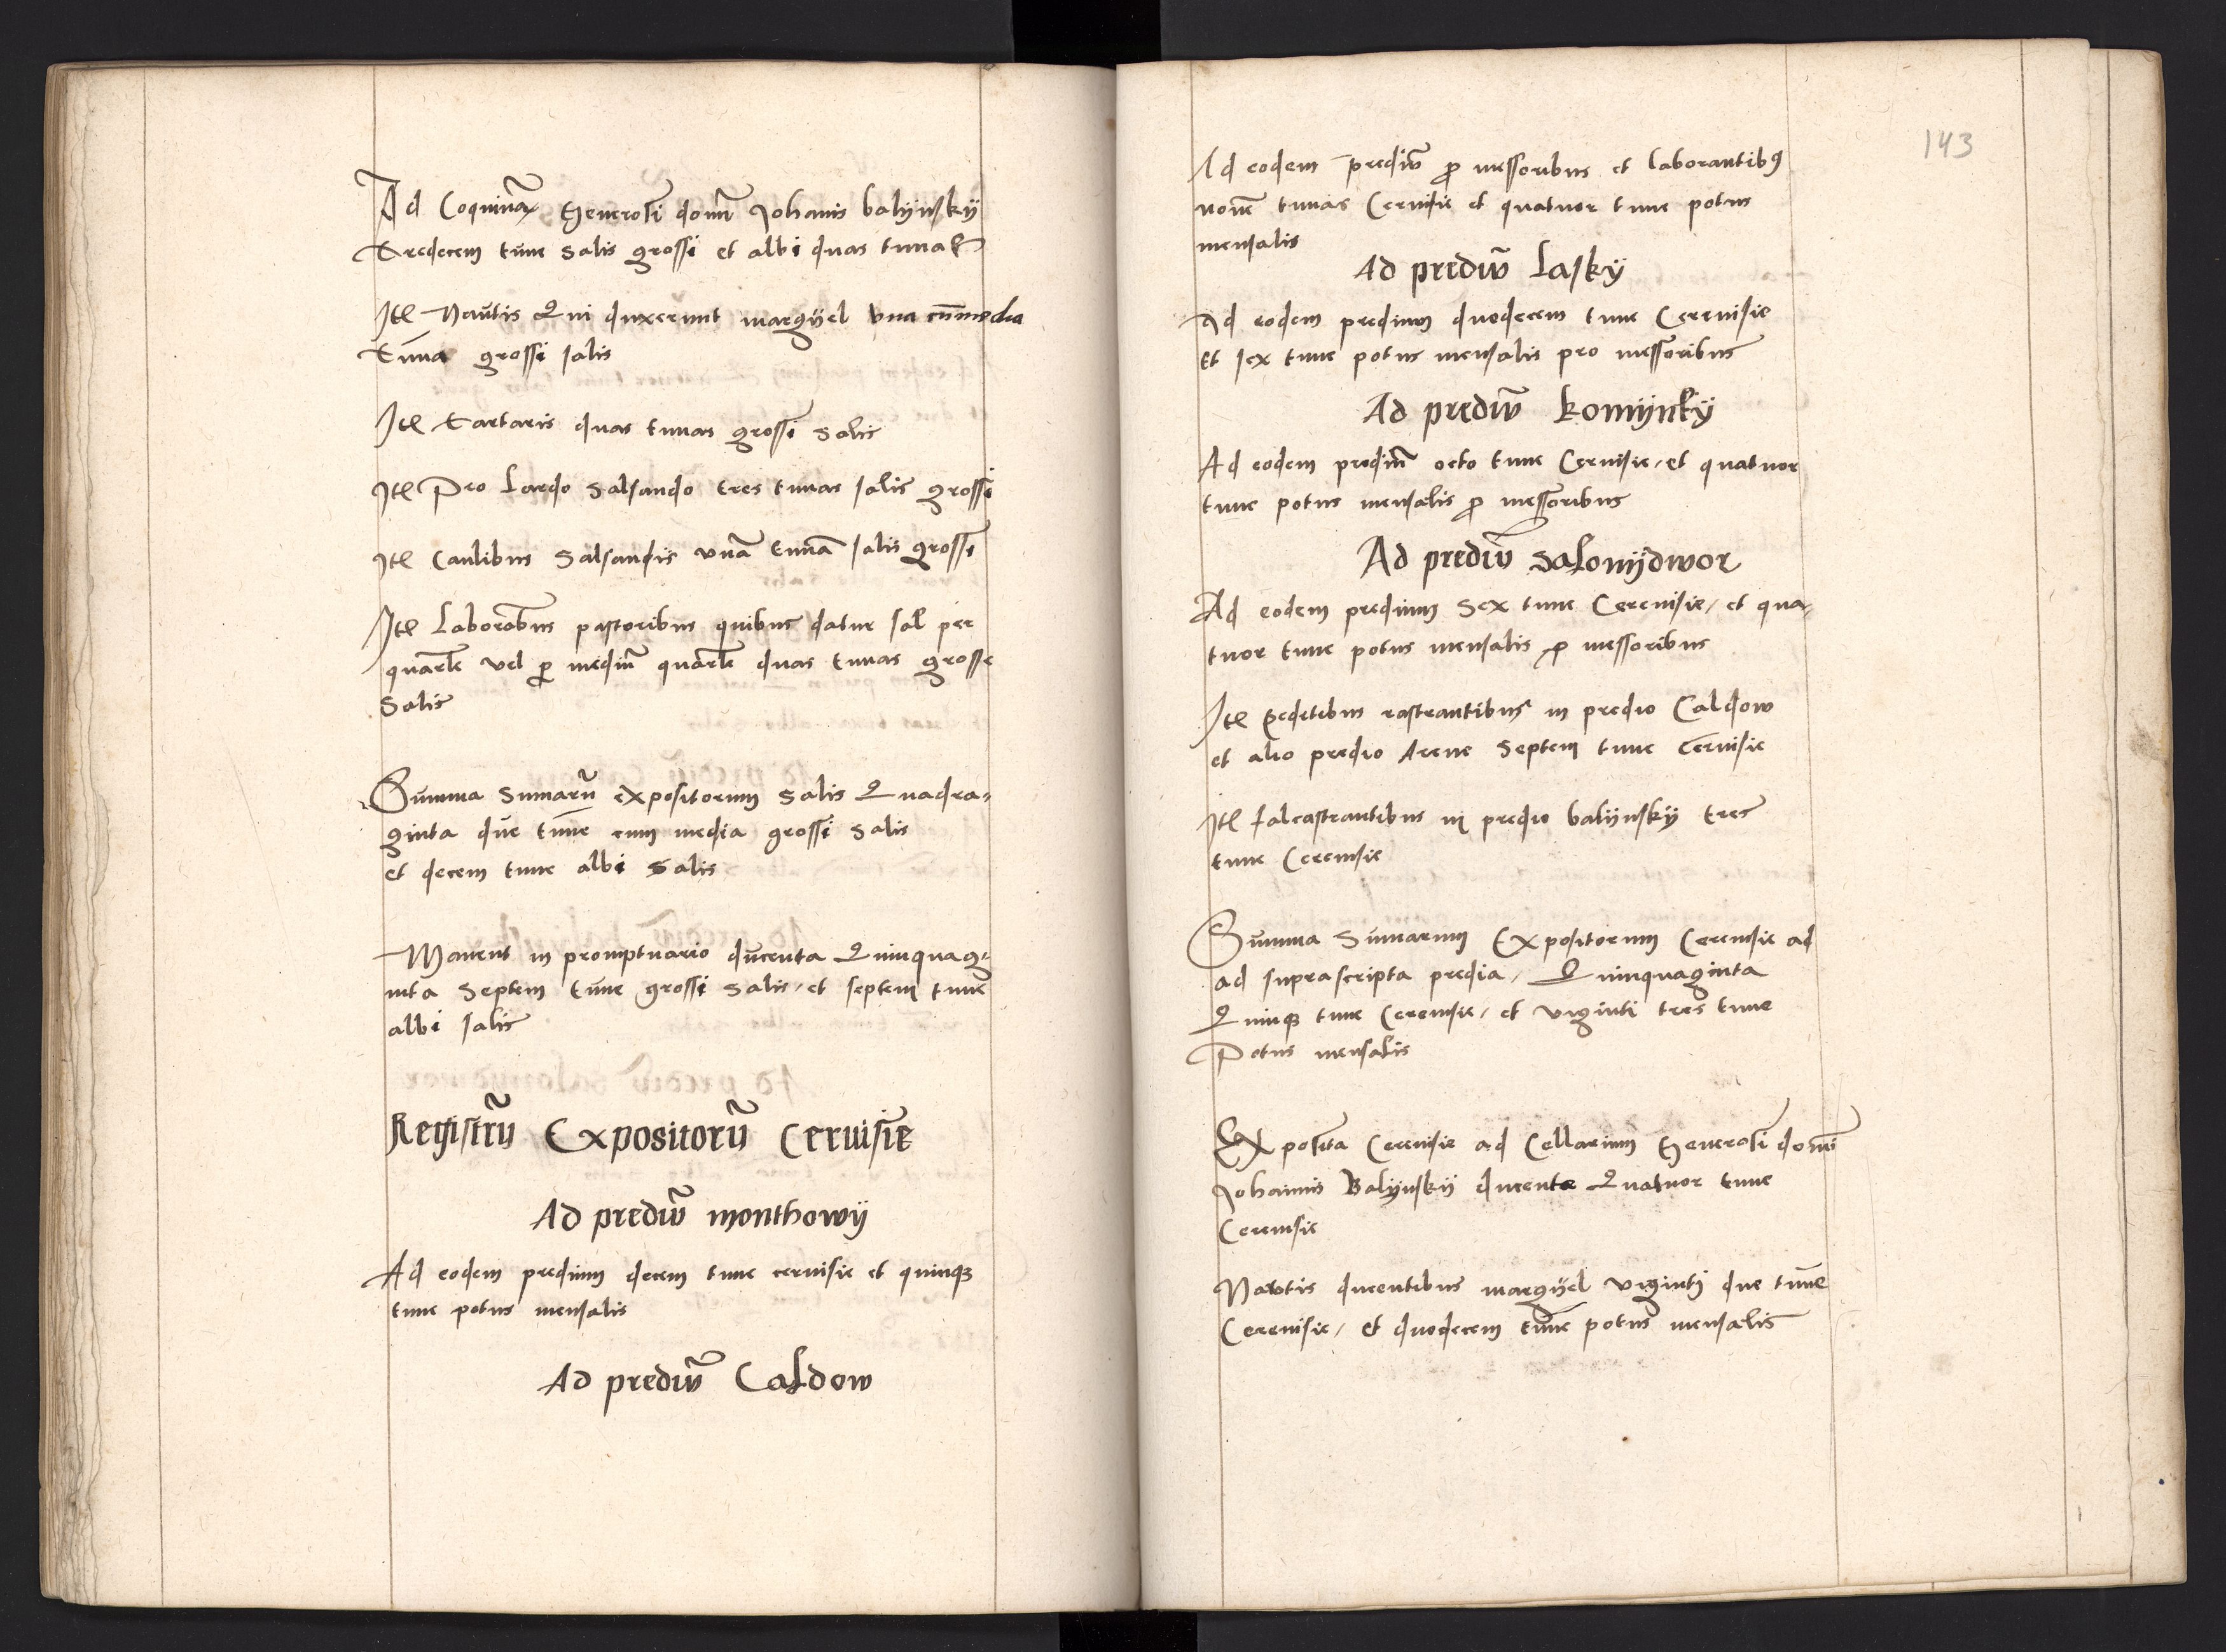 Ad Coquinā Generosi domī Johanis balijnskij
Tredecem tūne salis grossi et albi duas tunas
Itē Nautis Qui duxerunt margijel vna cū media
Tūna grossi salis
Itē Tartaris duas tunas grossi salis
Itē Pro Lardo salsando tres tunas salis grossi
Itē Caulibus salsandis vnā tunā salis grossi
Itē Laboraᵇᵘˢ pastoribus quibus datur sal per
quartle vel ꝑ mediū quartle duas tunas grosse
Salis
Summa Sumarū expositorum salis Quadra-
ginta due tūne cum media grossi salis
et decem tune albi salis
Manent in promptuario ducenta Quinquagi-
nta septem tūne grossi salis / et septem tune
albi salis
Registrū Expositorū Ceruisie
Ad prediū monthowij
Ad eodem predium decem tune ceruisie et quinqꝫ
tune potus mensalis
Ad prediū Caldow
143
Ad eodem prediū ꝓ messoribus et laborantibꝰ
nonē tunas Ceruisie et quatuor tune potus
mensalis
Ad prediū Laskÿ
Ad eodem predium duodecem tune Cereuisie
Et sex tune potus mensalis pro messoribus
Ad prediū komijnkij
Ad eodem prediū octo tune Ceruisie / et quatuor
tune potus mensalis ꝓ messoribus
Ad prediū salonijdwor
Ad eodem predium Sex tune Cereuisie / et qua-
tuor tune potus mensalis ꝓ messoribus
Itē peditibus rastrantibus in predio Caldow
et alio predio Arene septem tune ceruisie
Itē falcastrantibus in predio balijnskij tres
tune Cereuisie
Summa Sumarum Expositorum Cereuisie ad
ad suprascripta predia / Quinquaginta
Quinqꝫ tune Cereuisie / et viginti tres tune
Potus mensalis
Exposita Cereuisie ad Cellarium Generosi domī
Johannis Balijnskij ducente Quatuor tune
Cereuisie
Nautis ducentibus margijel viginti due tūne
Cereuisie / Et duodecem tūne potus mensalis